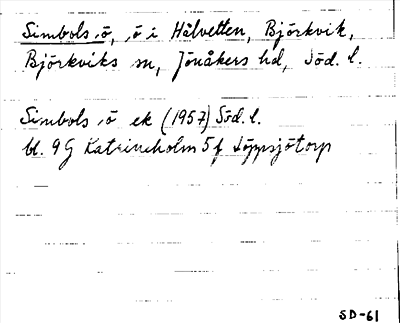 Simbols ö, ö i Hålvetten, Björkvik,
Björkviks sn, Jönåkers hd, Söd. l.
Simbols ö ek (1957) Söd. l.
bl. 9G Katrineholm 5f Löppsjötorp
SD-61